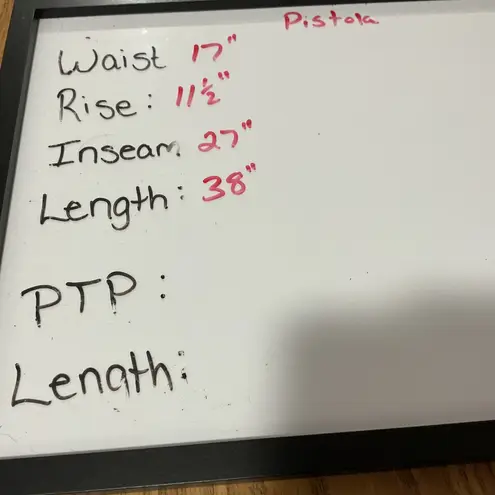 Pistola
Waist 17"
Rise: 11½"
Inseam 27"
Length: 38"
PTP:
Length: